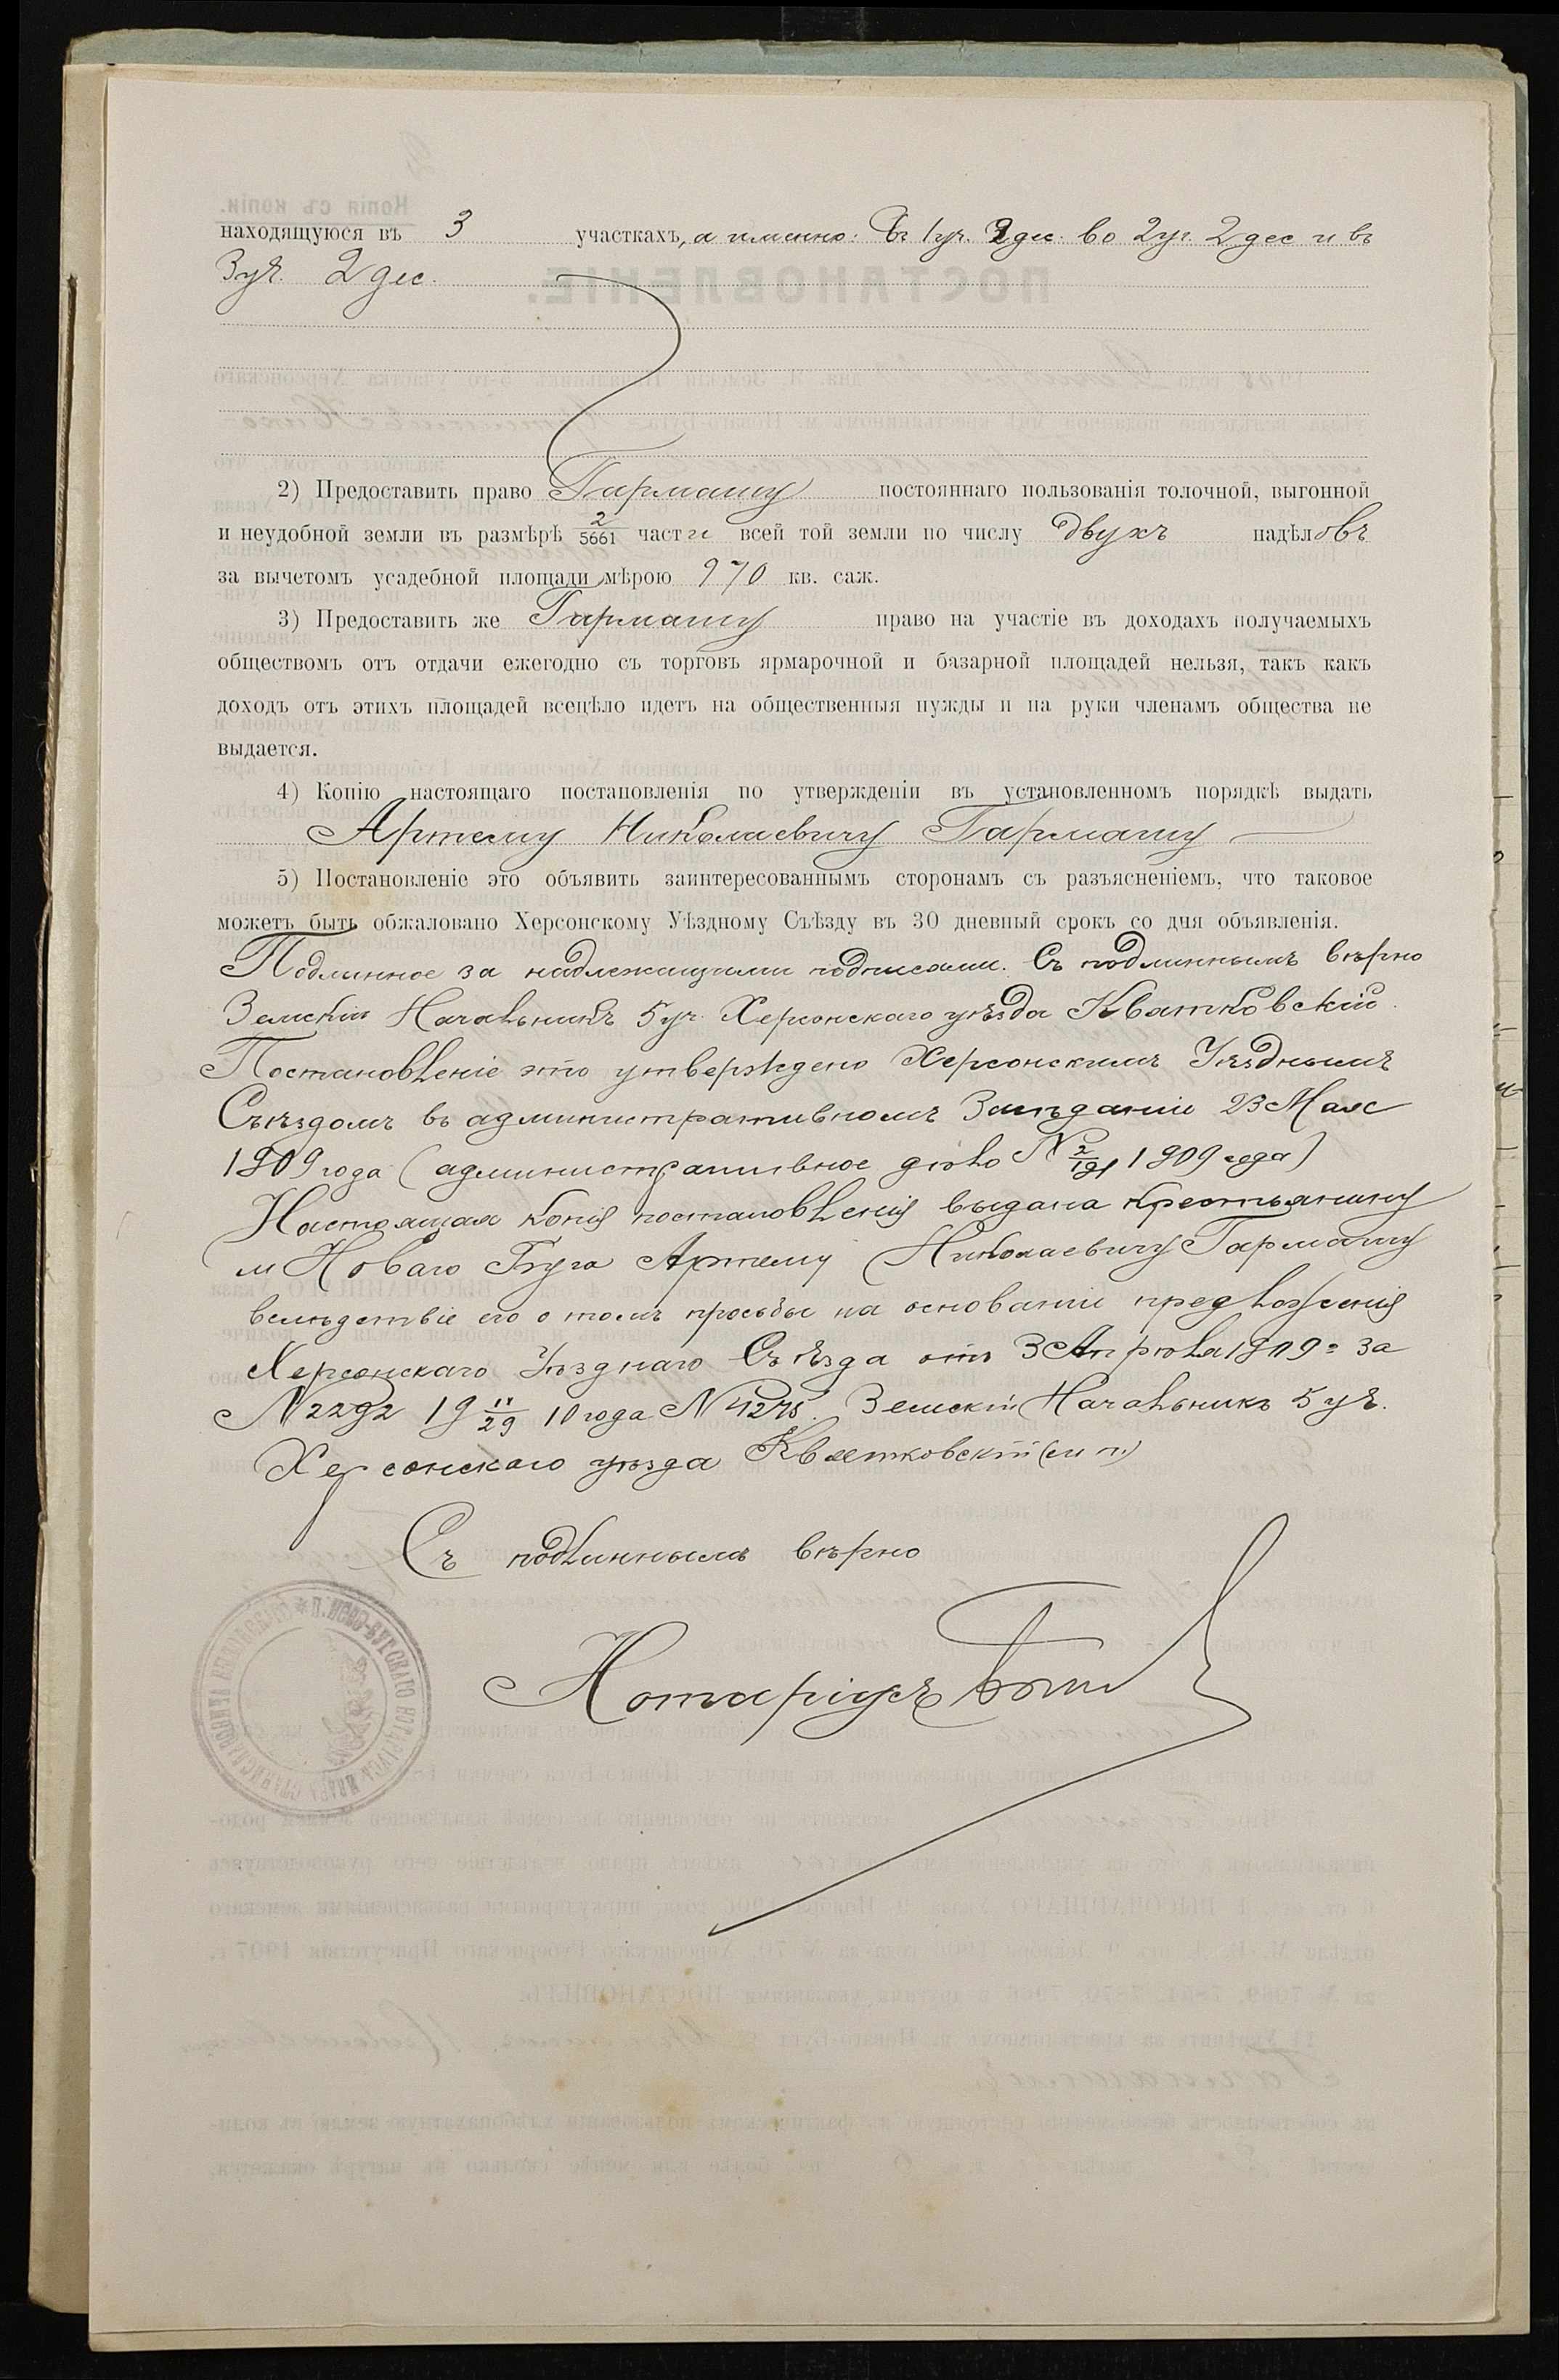 находящуюся въ 3 участкахъ, а именно: Въ 1 уч. 2 дес. во 2 уч. 2 дес и въ
3 уч. 2 дес.
2) Предоставить право Гармашу постояннаго пользованія толочной, выгонной
и неудобной земли въ размѣрѣ 2/5661 части всей той земли по числу двухъ надѣловъ
за вычетомъ усадебной площади мѣрою 970 кв. саж.
3) Предоставить же Гармашу право на участіе въ доходахъ получаемыхъ
обществомъ отъ отдачи ежегодно съ торговъ ярмарочной и базарной площадей нельзя, такъ какъ
доходъ отъ этихъ площадей всецѣло идетъ на общественныя нужды и на руки членамъ общества не
выдается.
4) Копію настоящаго постановленія по утвержденіи въ установленномъ порядкѣ выдать
Артему Николаевичу Гармашу
5) Постановленіе это объявить заинтересованнымъ сторонамъ съ разъясненіемъ, что таковое
можетъ быть обжаловано Херсонскому Уѣздному Съѣзду въ 30 дневный срокъ со дня объявленія.
Подлинное за надлежащими подписами. Съ подлиннымъ вѣрно
Земскій Начальникъ 5 уч. Херсонскаго уѣзда Квятковскій.
Постановленіе это утверждено Херсонскимъ Уѣзднымъ
Съѣздомъ въ административномъ Засѣданіи 23 Мая
1909 года (административное дѣло № 1909 года)
Настоящая копія постановленія выдана крестьянину
м Новаго Буга Артему Николаевичу Гармашу
вслѣдствіе его о томъ просьбы на основаніи предложенія
Херсонскаго Уѣзднаго Съѣзда отъ 3 Апрѣля 1909 г за
№ 2292 19 11/29 10 года № 4275. Земскій Начальникъ 5 уч.
Херсонскаго уѣзда Квятковскій (м п)
Съ подлиннымъ вѣрно
Нотаріусъ